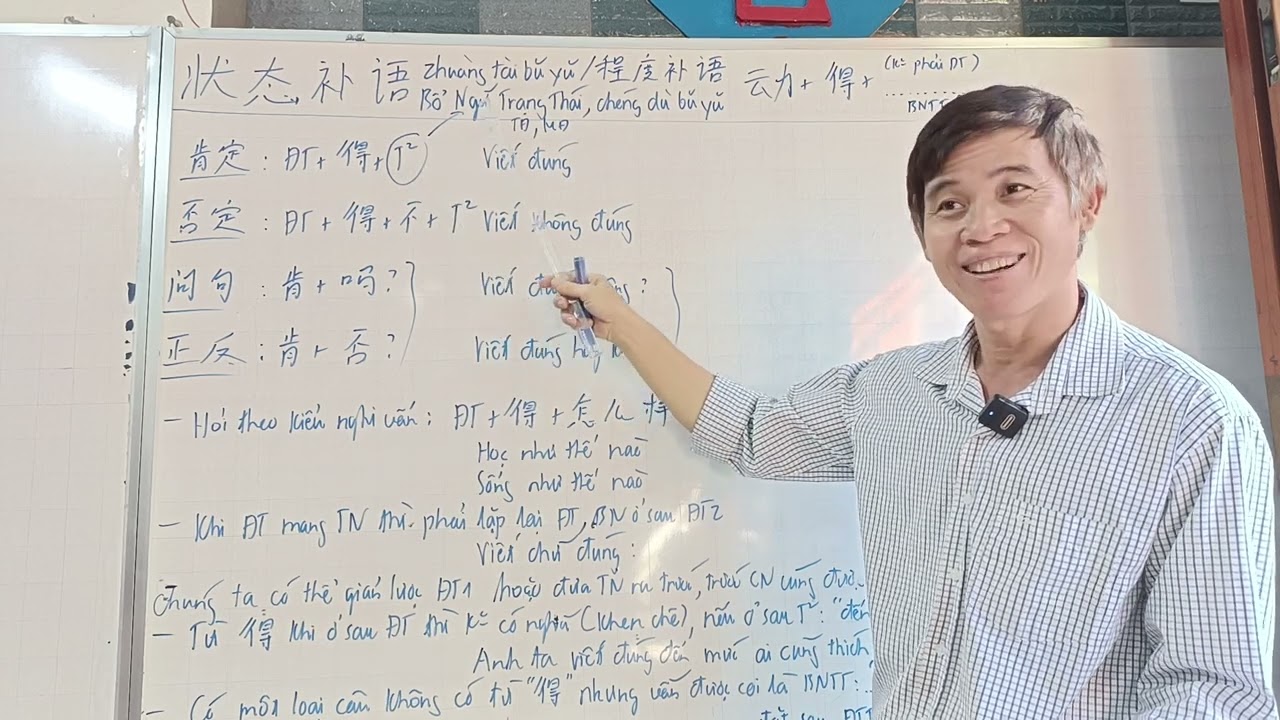 状态补语 zhuàng tài bǔ yǔ / 程度补语 动 + 得 + (Kº phải ĐT)
Bổ Ngữ Trạng Thái, chéng dù bǔ yǔ ............ BNTT
TĐ, MĐ
肯定 : ĐT + 得 + T² Viết đúng
否定 : ĐT + 得 + 不 + T² Viết không đúng
问句 : 肯 + 吗 ? Viết ?
正反 : 肯 + 否 ? Viết đúng
- Hỏi theo kiểu nghi vấn : ĐT + 得 + 怎么样
Học như thế nào
Sống như thế nào
- Khi ĐT mang TN thì phải lặp lại ĐT, BN ở sau ĐT2
Viết chữ đúng :
Chúng ta có thể giản lược ĐT1 / hoặc đưa TN ra trước, trước CN cũng đượ
- Từ 得 khi ở sau ĐT thì Kº có nghĩa (khen chê), nếu ở sau T² : "đến
Anh ta viết đúng đến mức ai cũng thích
- Có một loại câu không có từ "得" nhưng vẫn được coi là BNTT :